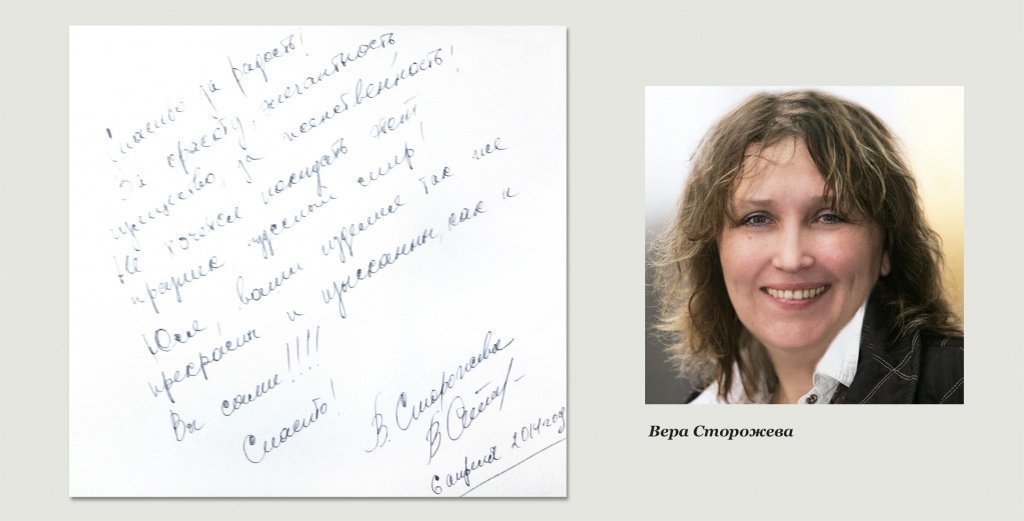 Спасибо за радость!
За красоту, элегантность
изящество, за женственность!
Не хочется покидать этот
праздник, чудесный мир!
Юля, ваши изделия так же
прекрасны и изысканны, как и
Вы сами!!!!
Спасибо!
В. Сторожева
6 апреля 2014 год
Вера Сторожева